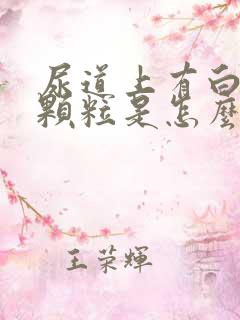 尿道上有白
顆粒是怎麼
王荣輝